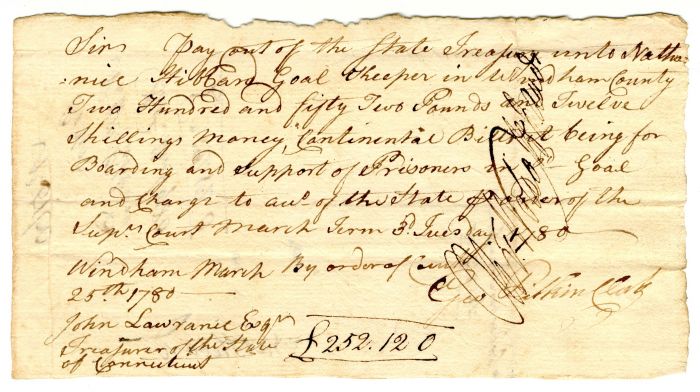 Sir Pay out of the State Treasury unto Natha-
niel Hibbard Goal Keeper in Windham County
Two Hundred and fifty Two Pounds and Twelve
Shillings Money, Continental Bills it being for
Boarding and Support of Prisoners in Sd Goal
and Charge to acct of the State pr order of the
Supr Court March Term 3d Tuesday 1780
Windham March By order of Court
25th 1780 Geo Pitkin Clerk
John Lawrance Esqr
Treasurer of the State £252.12 0
of Connecticut